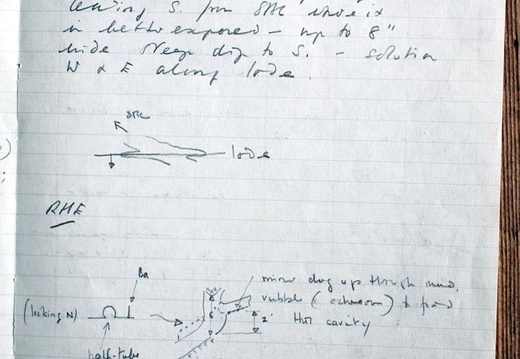 leaving S. from SRC where it
is better exposed - up to 8"
wide steep dip to S. - solution
W & E along lode.
SRC
lode
RHE
Ba
(looking N)
half-tube
miner dug up through mud,
rubble ( ) to find
this cavity
2'